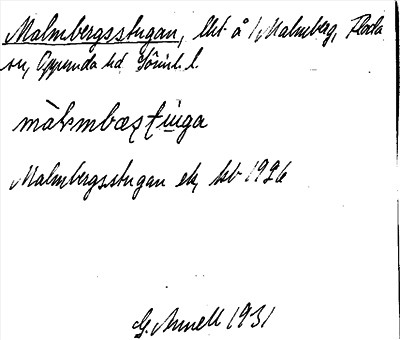 Malmbergsstugan, lht å 1 Malmberg, Floda
sn, Oppunda hd Söml. l.
màlmbæʂt̯uga
Malmbergsstugan ek, hb 1926
G. Annell 1931